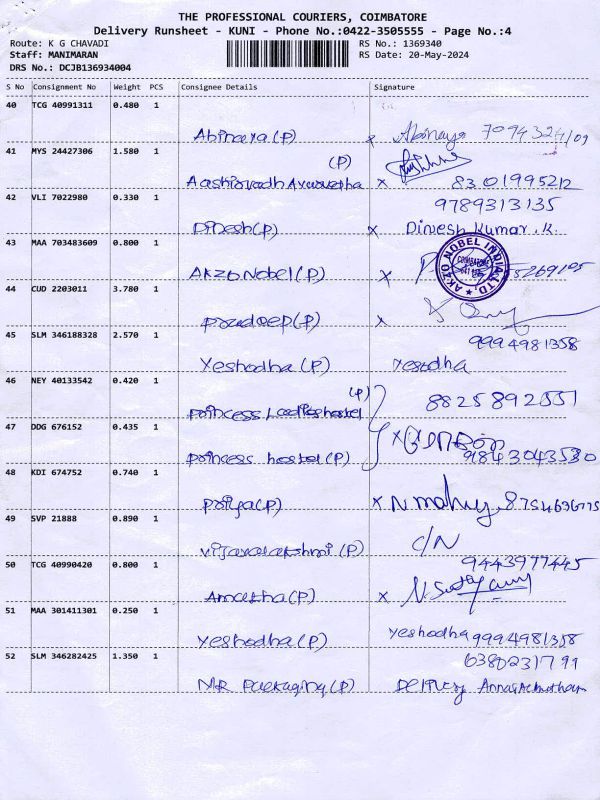 THE PROFESSIONAL COURIERS, COIMBATORE
Delivery Runsheet - KUNI - Phone No.:0422-3505555 - Page No.:4
Route: K G CHAVADI RS No.: 1369340
Staff: MANIMARAN RS Date: 20-May-2024
DRS No.: DCJB136934004
S No Consignment No Weight PCS Consignee Details Signature
40 TCG 40991311 0.480 1
Abinaya (P) x Abinaya 7094324/09
41 MYS 24427306 1.580 1
(P)
Aashirvadh x 8301995212
42 VLI 7022980 0.330 1 9789313135
Dinesh (P) x Dinesh Kumar.K.
43 MAA 703483609 0.800 1
AKZO NOBEL INDIA LTD.
COIMBATORE
Akzo Nobel (P) x
44 CUD 2203011 3.780 1
Pradeep (P) x
45 SLM 346188328 2.570 1 9994981358
Yeshodha (P) Yesodha
46 NEY 40133542 0.420 1
(P) 8825892551
Princess Ladies hostel
47 DDG 676152 0.435 1
x
Princess hostel (P) 9843043530
48 KDI 674752 0.740 1
Priya (P) x
49 SVP 21888 0.890 1
Vijayalakshmi (P) C/N
50 TCG 40990420 0.800 1 9443977445
(P) x
51 MAA 301411301 0.250 1
Yeshodha (P) Yeshodha 9994981358
52 SLM 346282425 1.350 1 6380231791
MR Packaging (P)